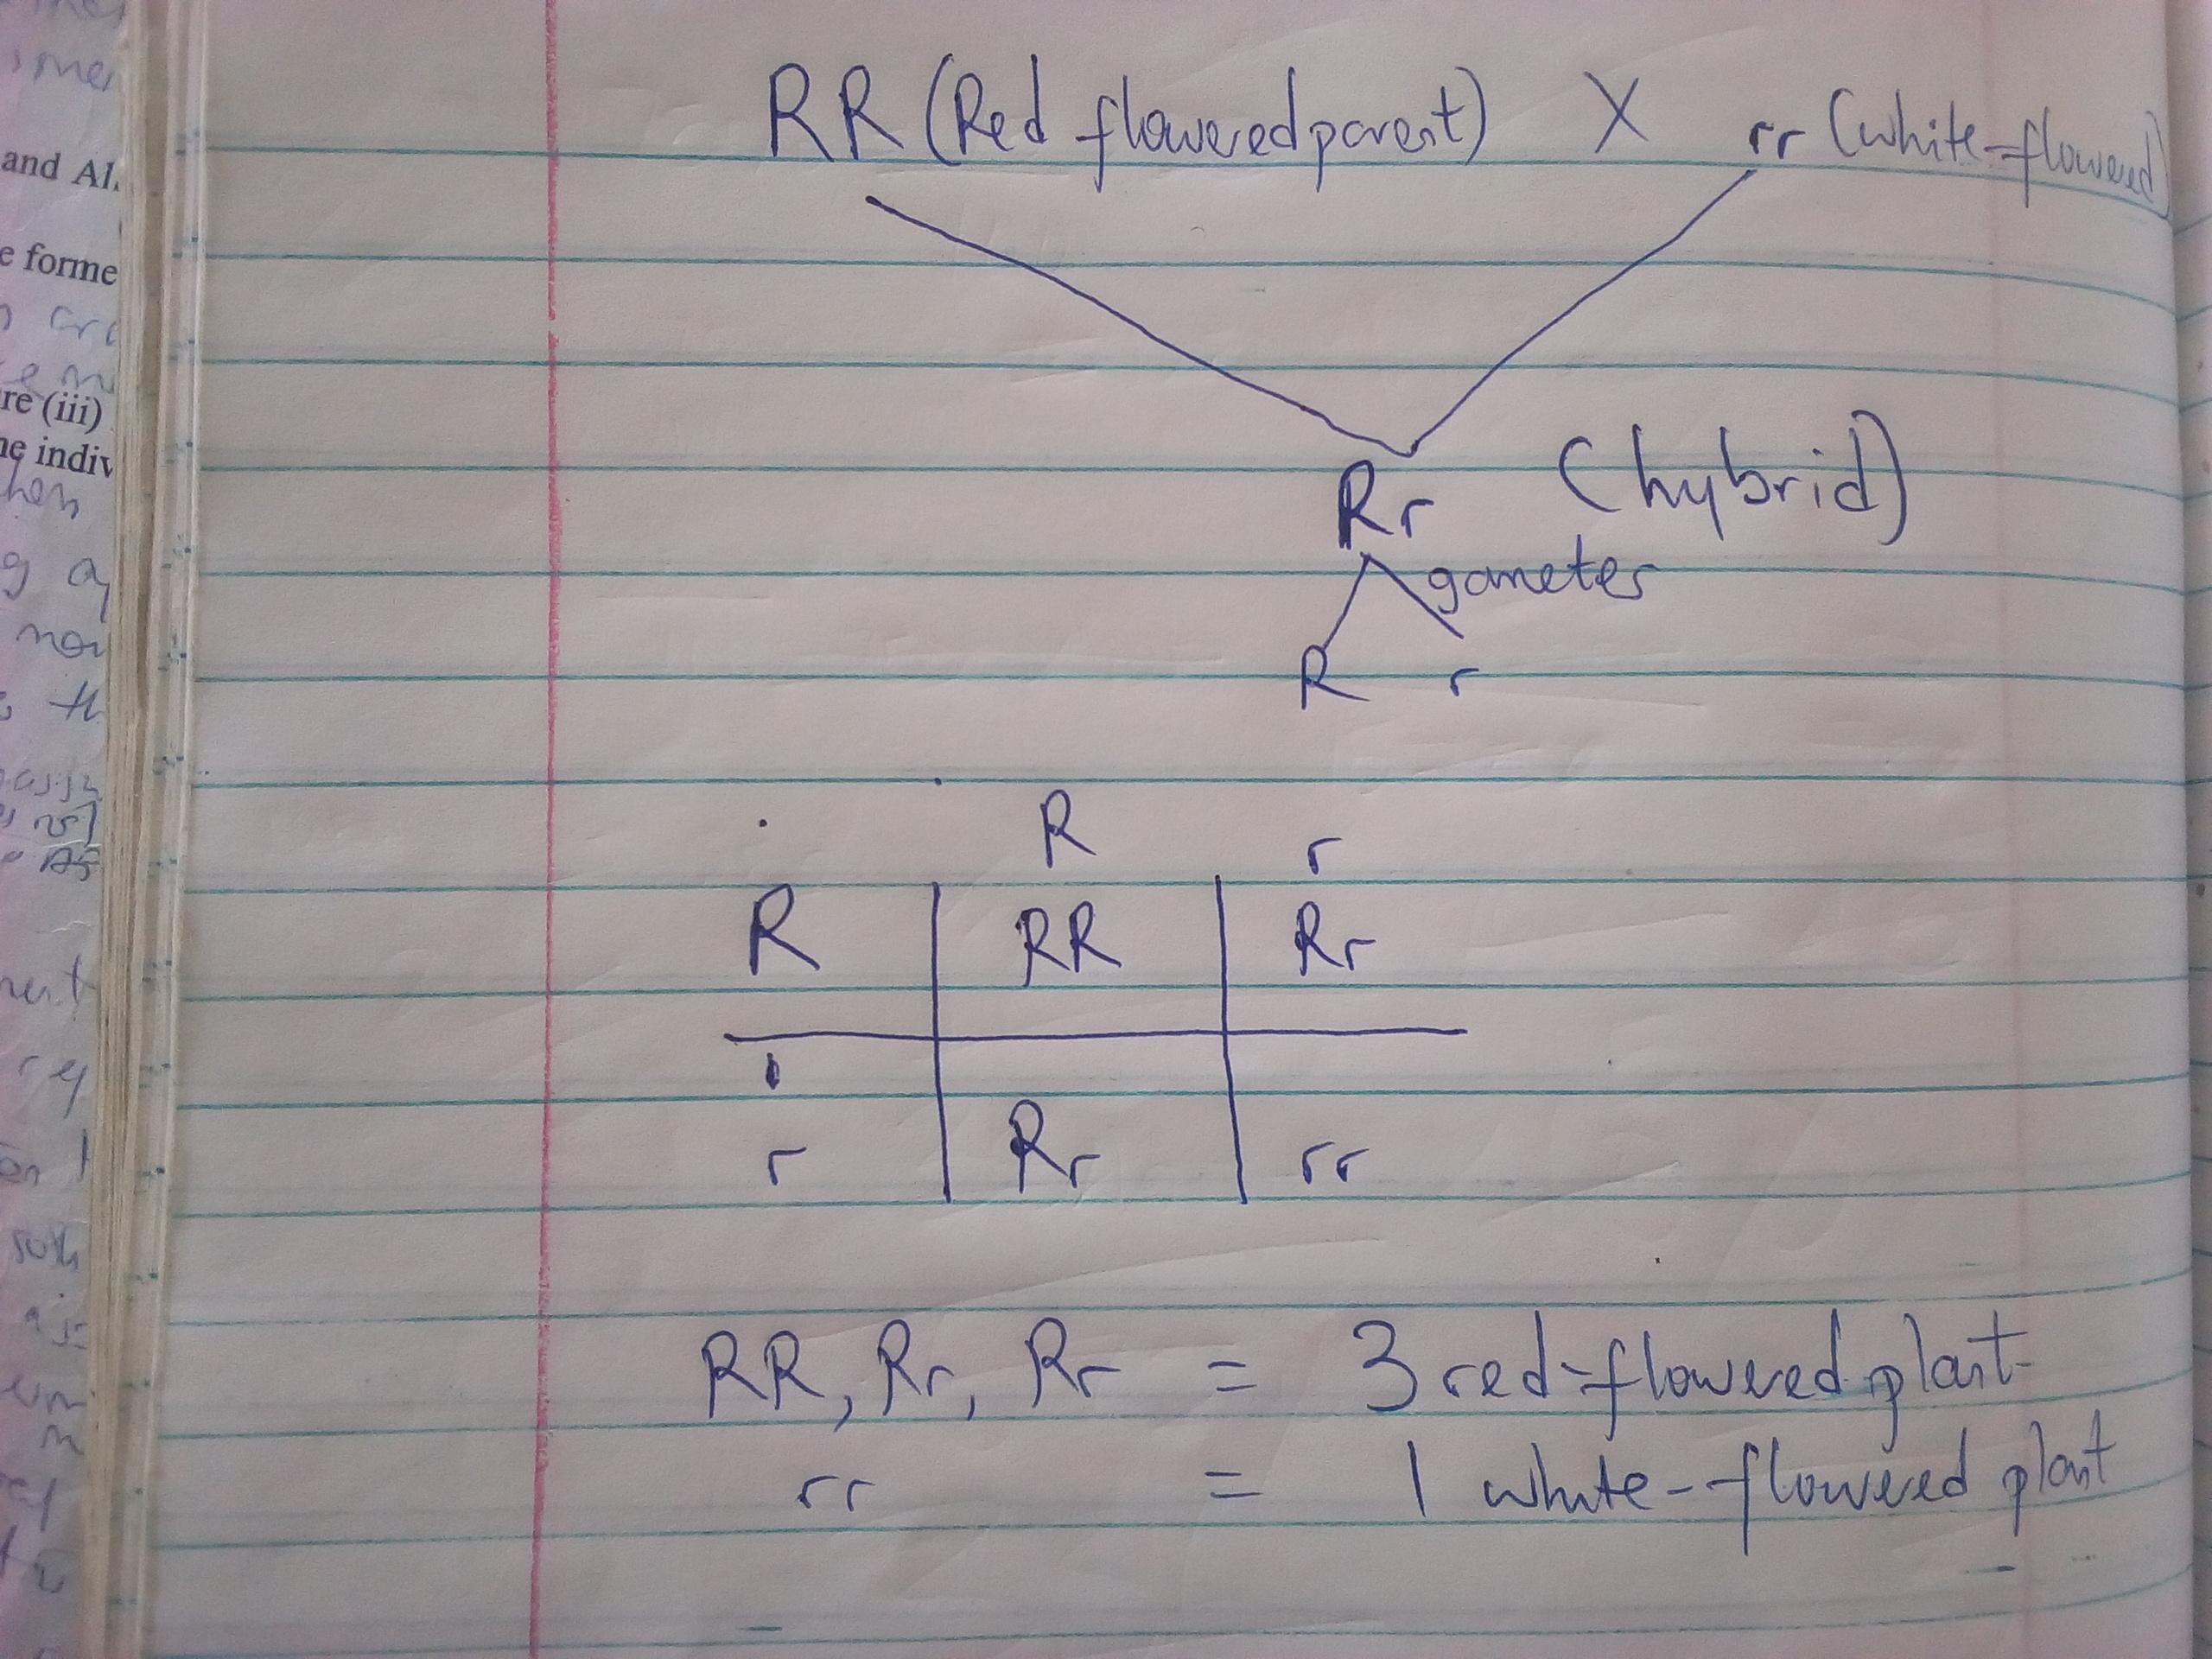 RR (Red flowered parent) X rr (white-flowered)
Rr (hybrid)
gametes
R r
R r
R RR Rr
r Rr rr
RR, Rr, Rr = 3 red-flowered plant
rr = 1 white-flowered plant
and Al
e forme
re (iii)
ne indiv